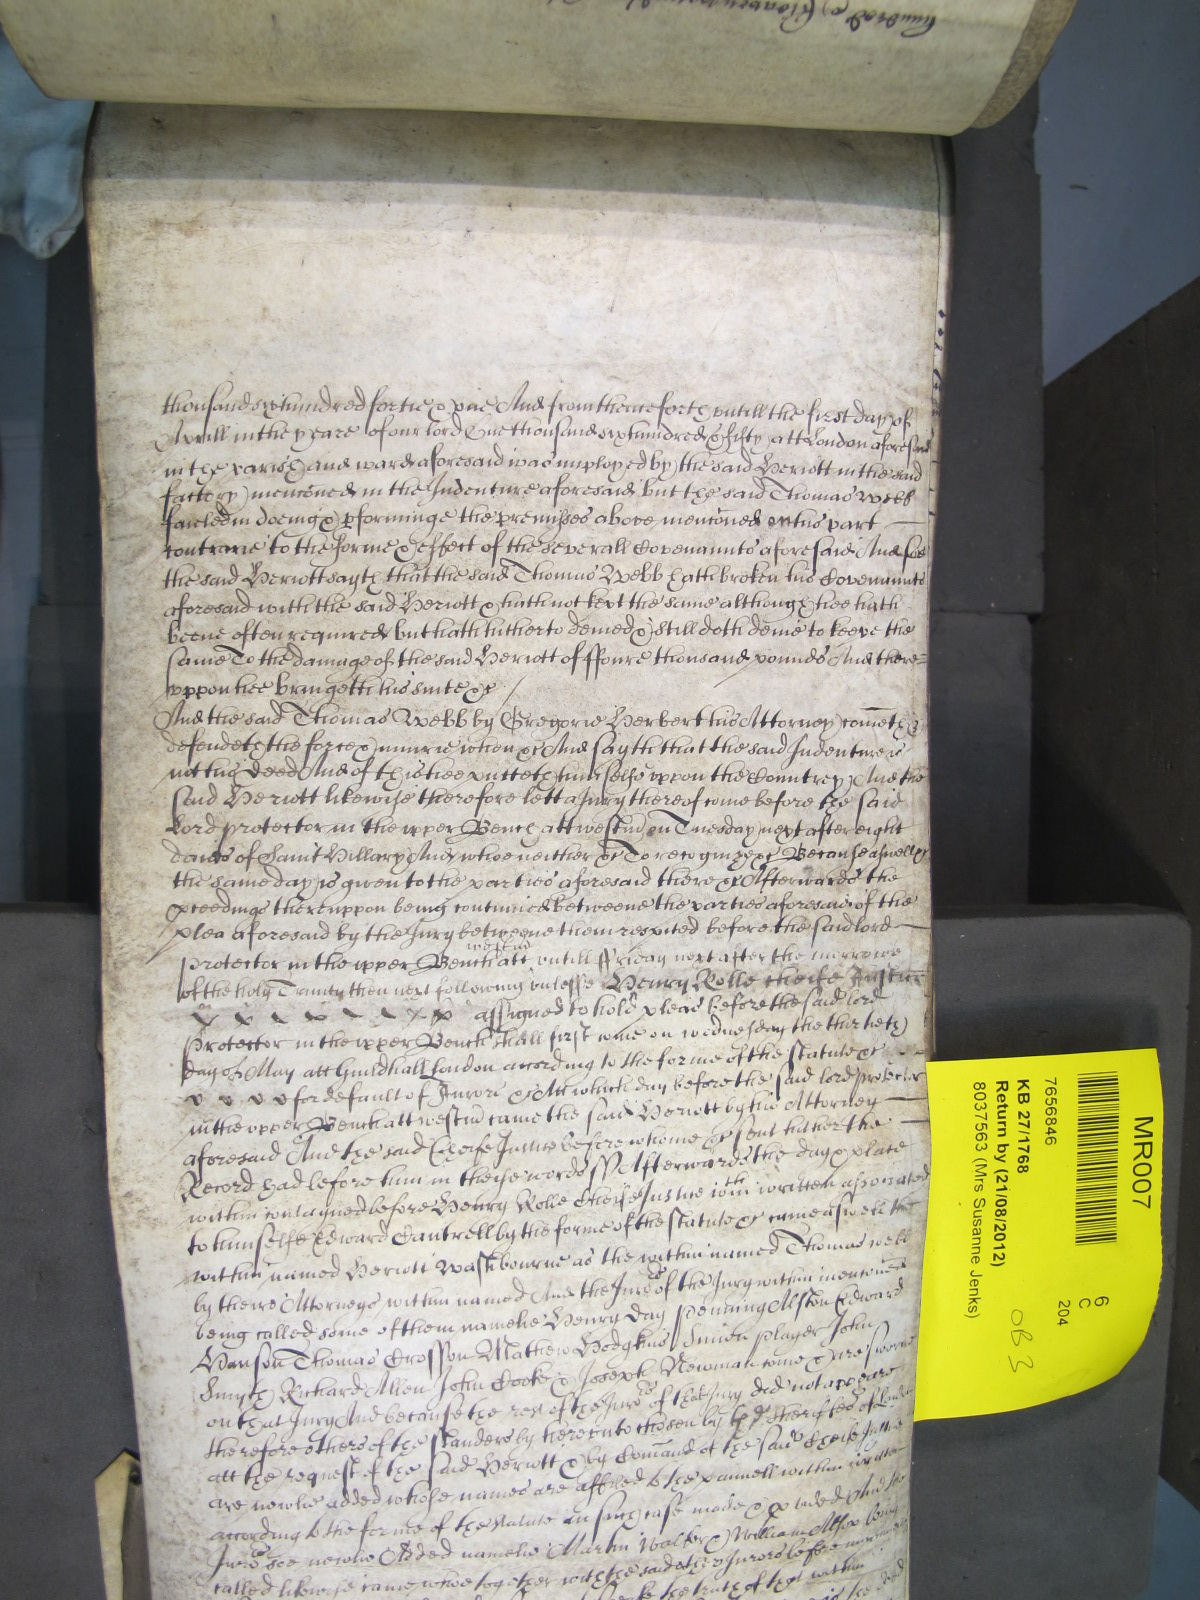 hundred &
thousand sixhundred fortie & one And from thenceforth untill the first day of
Aprill in the yeare of our lord One thousand sixhundred & fifty att London aforesaid
in the parish and ward aforesaid was imployed by the said Heriott in the said
factory mencioned in the Indenture aforesaid but the said Thomas Webb
failed in doeing & pforminge the premisses above mencioned on his part
contrarie to the forme & effect of the severall Covenannts aforesaid And soe
the said Heriott sayth that the said Thomas Webb hath broken his Covenannts
aforesaid with the said Heriott & hath not kept the same although hee hath
beene often required but hath hitherto denied & still doth denie to keepe the
same To the damage of the said Heriott of ffoure thousand pounds And there=
uppon hee bringeth his suite &c
And the said Thomas Webb by Gregorie Herbert his Attorney cometh &
defendeth the force & iniurie when &c And sayth that the said Indenture is
not his deed And of this hee putteth himselfe uppon the Countrey And the
said Heriott likewise therefore lett a Jury thereof come before the said
Lord protector in the upper Bench att Westm on Tuesday next after eight
daies of Saint Hillary And whoe neither &c To recognize &c Because aswell &c
the same day is given to the parties aforesaid there &c Afterwards the
pceedings thereuppon being continued betweene the parties aforesaid of the
plea aforesaid by the Jury betweene them respited before the said lord
protector in the upper Bench att westm untill ffriday next after the morrowe
of the holy Trinity then next following unlesse Henry Rolle cheife Justice
assigned to hold pleas before the said lord
Protector in the upper Bench shall first come on wednesday the thirtieth
day of May att Guildhall London according to the forme of the statute &c
for default of Jurors &c Att which day before the said lord protector
in the upper Bench att westm came the said Heriott by his Attorney
aforesaid And the said Cheife Justice before whome &c sent hither the
Record had before him in theise words ss Afterwards the day & place
within contayned before Henry Rolle Cheife Justice within written associated
to himselfe Edward Cantrell by the forme of the statute &c came aswell the
within named Heriott Washbourne as the within named Thomas webb
by theire Attorneys within named And the Jurors of the Jury within mencioned
being called some of them namelie Henry Day Penning Alston Edward
Hanson Thomas Crosson Mathew Hodgkins Simon Player John
Smyth Richard Allen John Cooke & Joseph Newman come & are sworne
on that Jury And because the rest of the Jurors of that Jury did not appeare
therefore others of the standersby hereunto chosen by the sheriffes of London
att the request of the said Heriott & by Comand of the said Cheife Justice
are newlie added whose names are affiled to the pannell within written
according to the forme of the statute in such case made & pvided And the
Jurors soe newlie Added namelie Martin Walter & William Alsop being
called likewise came whoe together with the said other Jurors before
the truth of that within
MR007
6
C
204
7656846
KB 27/1768
Return by (21/08/2012)
8037563 (Mrs Susanne Jenks)
OB 3